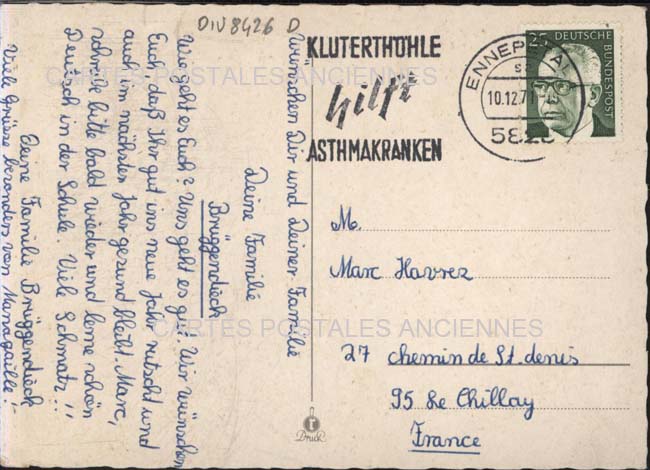 DIV8426 D
KLUTERTHÖHLE
hilft
ASTHMAKRANKEN
10.12.71
DEUTSCHE
BUNDESPOST
wünschen Dir und Deiner Familie
Deine Familie
Brüggendieck
Wie geht es Euch? Uns geht es gut. Wir wünschen
Euch, daß Ihr gut ins neue Jahr rutscht und
auch im nächsten Jahr gesund bleibt. Marc,
schreibe bitte bald wieder und lerne schön
Deutsch in der Schule. Viele Schmatz!!
Deine Familie Brüggendieck
Viele Grüsse besonders von
M.
Marc Havrez
27 chemin de St. denis
95 Le Chillay
France
Druck
CARTES POSTALES ANCIENNES
CARTES POSTALES ANCIENNES